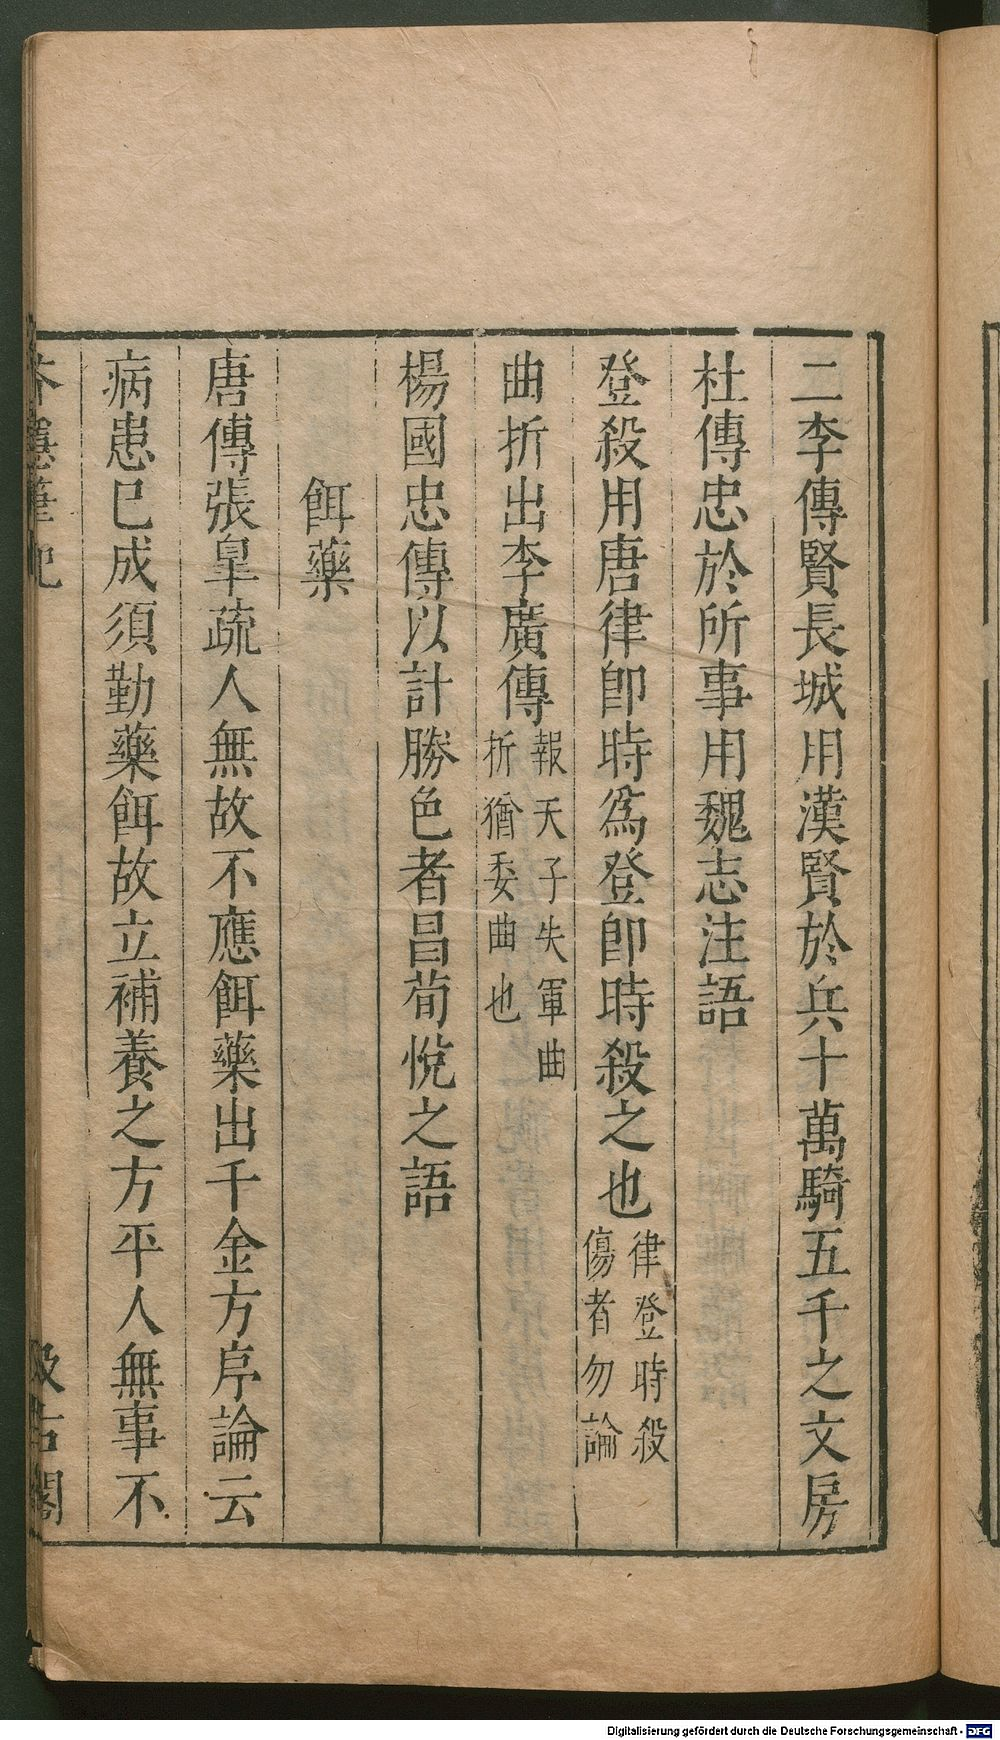 二李傳賢長城用漢賢於兵十萬騎五千之文房
杜傳忠於所事用魏志注語
登殺用唐律卽時爲登卽時殺之也律登時殺傷者勿論
曲折出李廣傳報天子失軍曲折猶委曲也
楊國忠傳以計勝色者昌荀悅之語
餌藥
唐傳張皐疏人無故不應餌藥出千金方序論云
病患已成須勤藥餌故立補養之方平人無事不
芥隱筆記
汲古閣
Digitalisierung gefördert durch die Deutsche Forschungsgemeinschaft - DFG